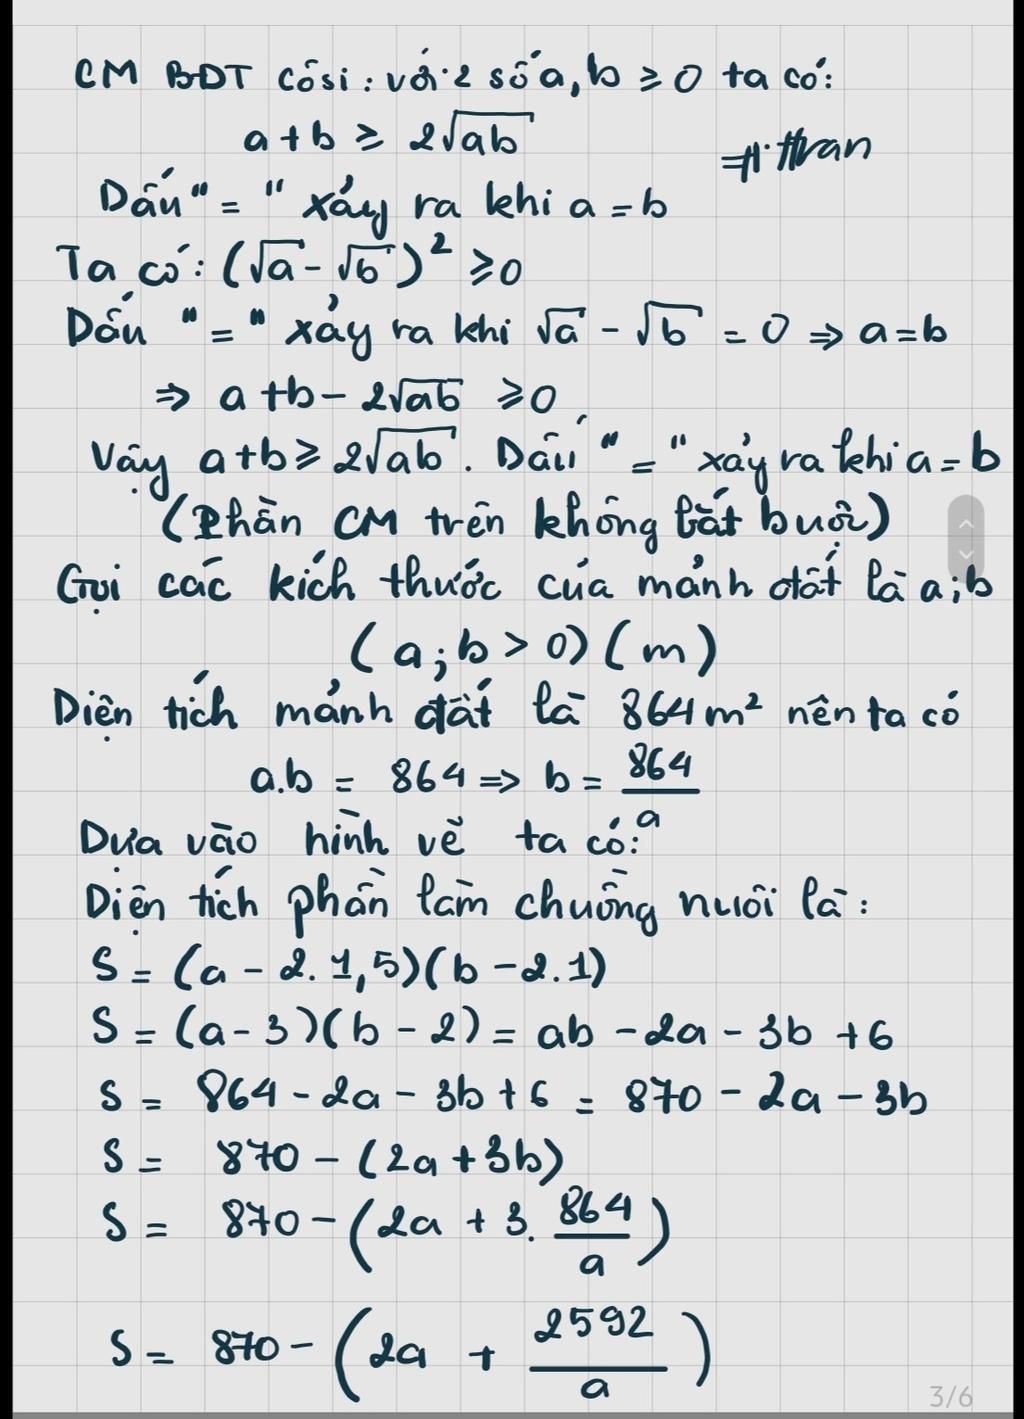 CM BĐT Côsi: với 2 số a, b ≥ 0 ta có:
a + b ≥ 2√ab
Dấu "=" xảy ra khi a = b
Ta có: (√a - √b)² ≥ 0
Dấu "=" xảy ra khi √a - √b = 0 ⇒ a = b
⇒ a + b - 2√ab ≥ 0
Vậy a + b ≥ 2√ab. Dấu "=" xảy ra khi a = b
(Phần CM trên không bắt buộc)
Gọi các kích thước của mảnh đất là a; b
(a; b > 0) (m)
Diện tích mảnh đất là 864 m² nên ta có
a.b = 864 ⇒ b = 864/a
Dựa vào hình vẽ ta có:
Diện tích phần làm chuồng nuôi là:
S = (a - 2.1,5)(b - 2.1)
S = (a - 3)(b - 2) = ab - 2a - 3b + 6
S = 864 - 2a - 3b + 6 = 870 - 2a - 3b
S = 870 - (2a + 3b)
S = 870 - (2a + 3. 864/a)
S = 870 - (2a + 2592/a)
3/6